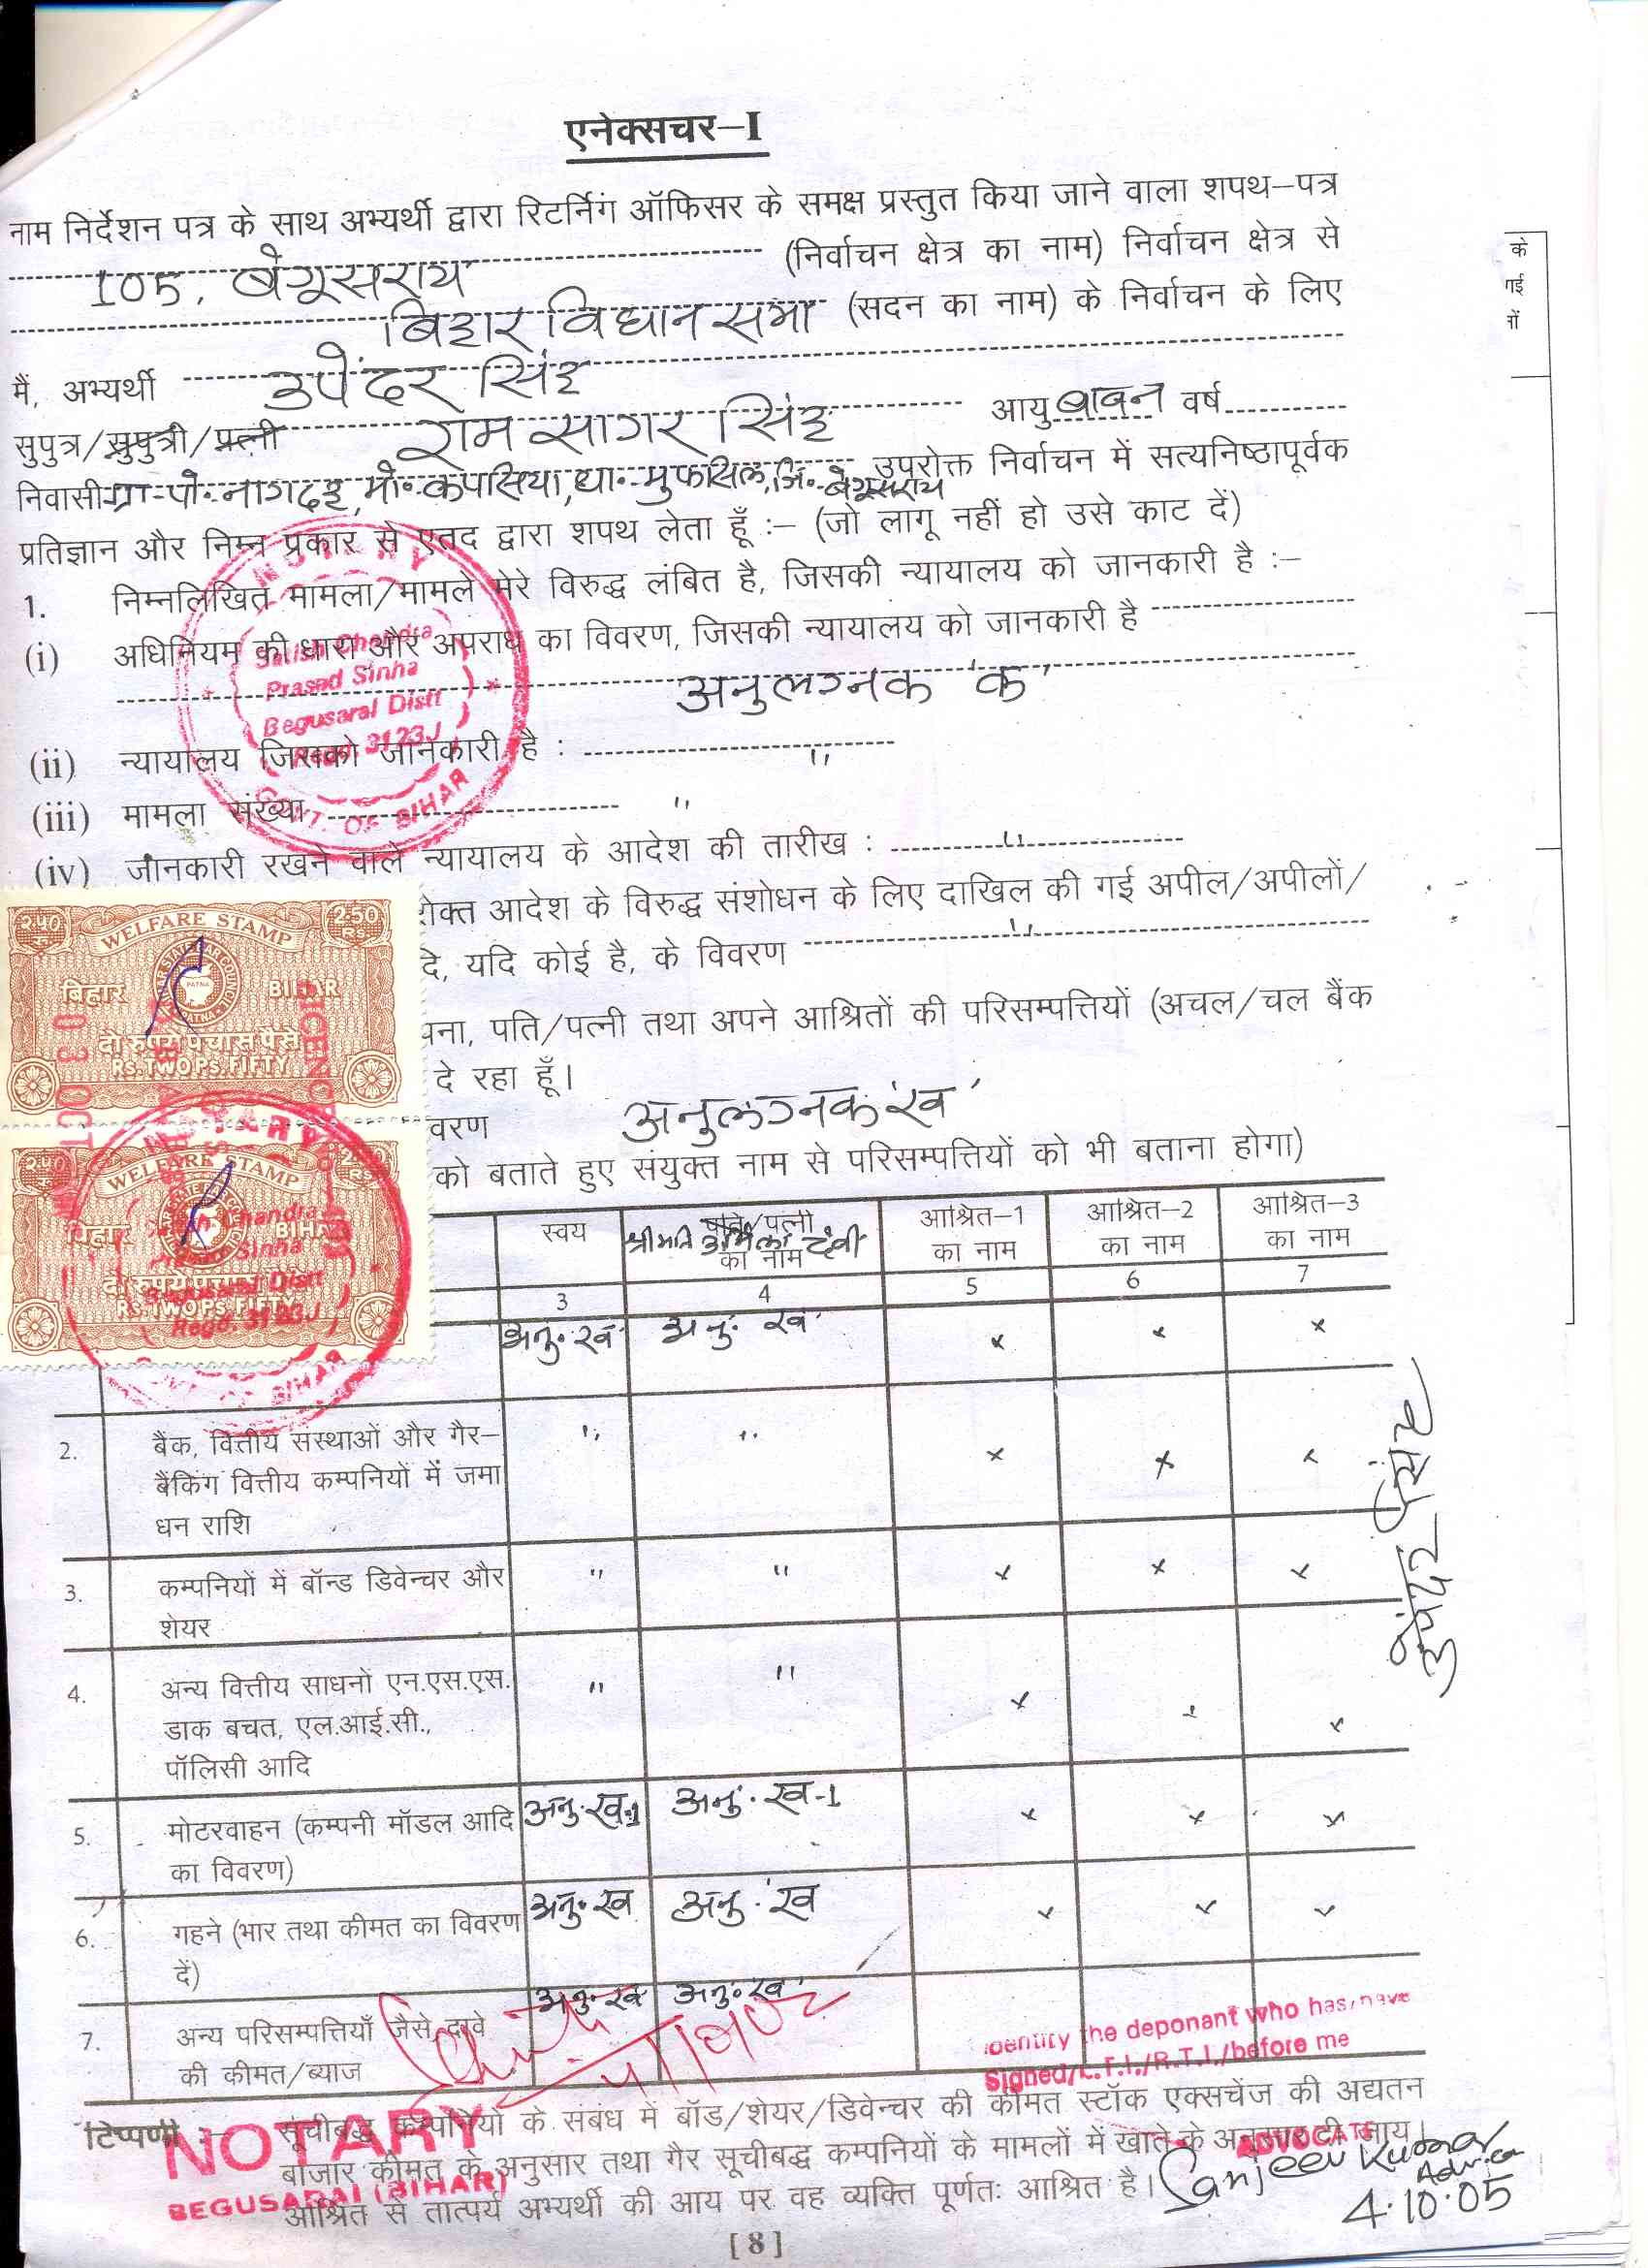 एनेक्सचर–I
नाम निर्देशन पत्र के साथ अभ्यर्थी द्वारा रिटर्निंग ऑफिसर के समक्ष प्रस्तुत किया जाने वाला शपथ–पत्र
105, बेगूसराय (निर्वाचन क्षेत्र का नाम) निर्वाचन क्षेत्र से
बिहार विधान सभा (सदन का नाम) के निर्वाचन के लिए
मैं, अभ्यर्थी उपेंदर सिंह
सुपुत्र/सुपुत्री/पत्नी राम सागर सिंह आयु बावन वर्ष
निवासी ग्रा- पो- नागदह, मो- कपसिया, था- मुफसिल, जि- बेगूसराय उपरोक्त निर्वाचन में सत्यनिष्ठापूर्वक
प्रतिज्ञान और निम्न प्रकार से एतद द्वारा शपथ लेता हूँ :– (जो लागू नहीं हो उसे काट दें)
1. निम्नलिखित मामला/मामले मेरे विरुद्ध लंबित है, जिसकी न्यायालय को जानकारी है :–
(i) अधिनियम की धारा और अपराध का विवरण, जिसकी न्यायालय को जानकारी है
अनुलग्नक 'क'
(ii) न्यायालय जिसको जानकारी है : "
(iii) मामला संख्या "
(iv) जानकारी रखने वाले न्यायालय के आदेश की तारीख : "
रोक्त आदेश के विरुद्ध संशोधन के लिए दाखिल की गई अपील/अपीलों/
दे, यदि कोई है, के विवरण "
पना, पति/पत्नी तथा अपने आश्रितों की परिसम्पत्तियों (अचल/चल बैंक
दे रहा हूँ।
वरण अनुलग्नक 'ख'
को बताते हुए संयुक्त नाम से परिसम्पत्तियों को भी बताना होगा)
स्वय पति/पत्नी का नाम श्रीमति उर्मिला देवी आश्रित–1 का नाम आश्रित–2 का नाम आश्रित–3 का नाम
3 4 5 6 7
अनु॰ ख' अनु॰ ख' × × ×
2. बैंक, वित्तीय संस्थाओं और गैर– " " × × ×
बैंकिंग वित्तीय कम्पनियों में जमा
धन राशि
3. कम्पनियों में बॉन्ड डिवेन्चर और " " × × ×
शेयर
4. अन्य वित्तीय साधनों एन.एस.एस. " " × × ×
डाक बचत, एल.आई.सी.,
पॉलिसी आदि
5. मोटरवाहन (कम्पनी मॉडल आदि अनु॰ ख-1 अनु॰ ख-1 × × ×
का विवरण)
6. गहने (भार तथा कीमत का विवरण अनु॰ ख अनु॰ 'ख × × ×
दें)
7. अन्य परिसम्पत्तियाँ जैसे दावे अनु॰ ख' अनु॰ ख'
की कीमत/ब्याज
टिप्पणी :– सूचीबद्ध कम्पनियों के संबंध में बॉड/शेयर/डिवेन्चर की कीमत स्टॉक एक्सचेंज की अद्यतन
बाजार कीमत के अनुसार तथा गैर सूचीबद्ध कम्पनियों के मामलों में खाते के अनुसार दी जाय।
आश्रित से तात्पर्य अभ्यर्थी की आय पर वह व्यक्ति पूर्णतः आश्रित है।
[8]
उपेंदर सिंह
के
गई
नों
NOTARY
Satish Chandra
Prasad Sinha
Begusarai Distt
Regd. 3123J
GOVT. OF BIHAR
२५० 2.50
WELFARE STAMP
बिहार BIHAR
PATNA
दो रुपये पचास पैसे
RS. TWO PS. FIFTY
WELFARE STAMP
बिहार BIHAR
दो रुपये पचास पैसे
RS. TWO PS. FIFTY
Chandra
Sinha
Begusarai Distt
Regd. 3123J
BIHAR
NOTARY
BEGUSARAI (BIHAR)
identify the deponant who has, have
Signed/L.T.I./R.T.I./before me
ADVOCATE
Sanjeev Kumar
4.10.05